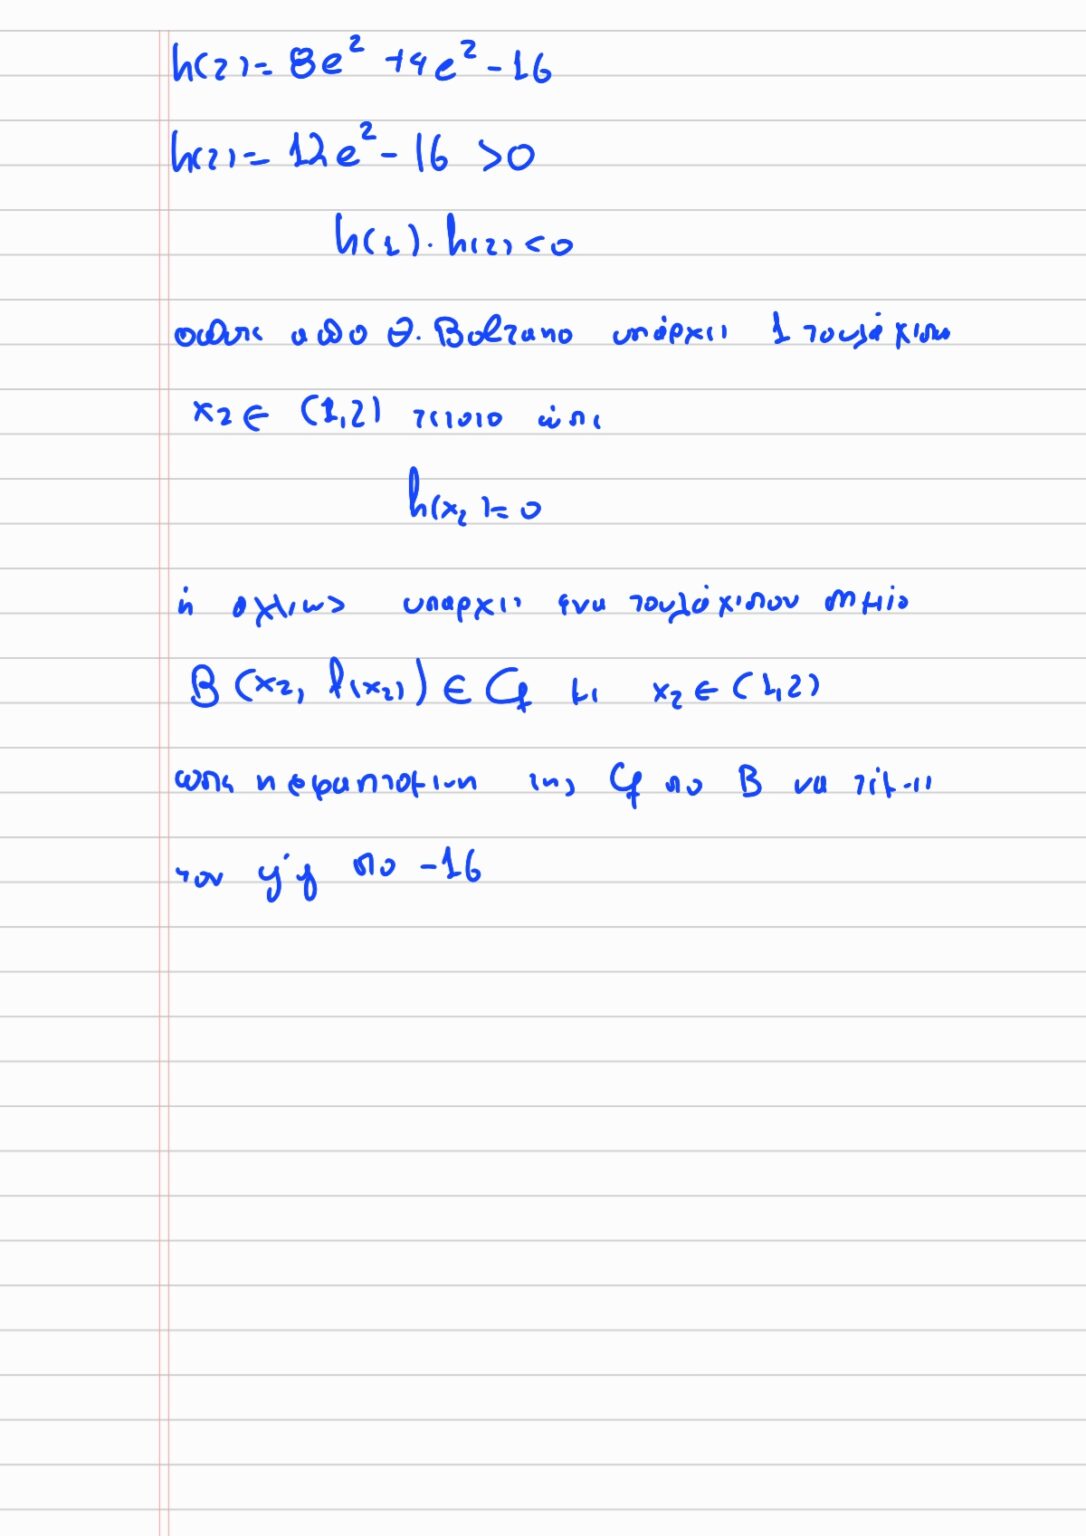 h(2) = 8e² + 4e² - 16
h(2) = 12e² - 16 > 0
h(1) · h(2) < 0
από Θ. Bolzano υπάρχει 1 τουλάχιστον
x₂ ∈ (1,2) τέτοιο ώστε
h(x₂) = 0
ή υπαρχει ενα τουλάχιστον σημείο
B (x₂, f(x₂)) ∈ Cf με x₂ ∈ (1,2)
ωστε η εφαπτομενη της Cf στο B να τέμνει
τον y'y στο -16